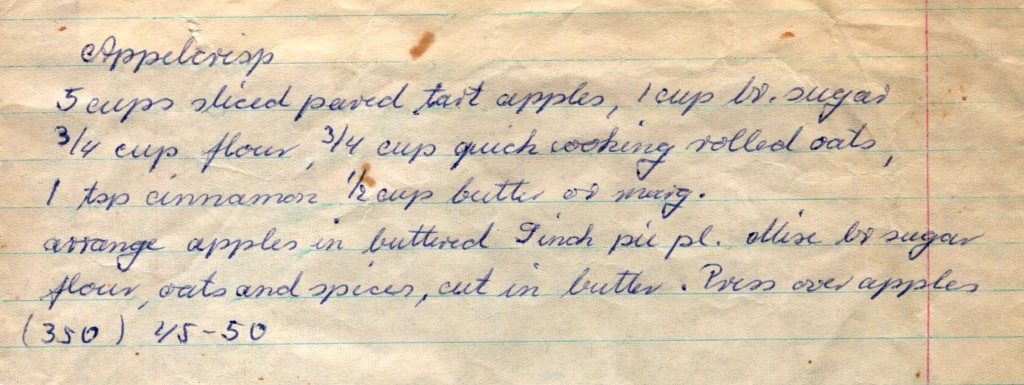 Appelcrisp
5 cups sliced pared tart apples, 1 cup br. sugar
3/4 cup flour, 3/4 cup quick cooking rolled oats,
1 tsp cinnamon 1/2 cup butter or marg.
arrange apples in buttered 9 inch pie pl. Mix br sugar
flour, oats and spices, cut in butter. Press over apples
(350) 45-50